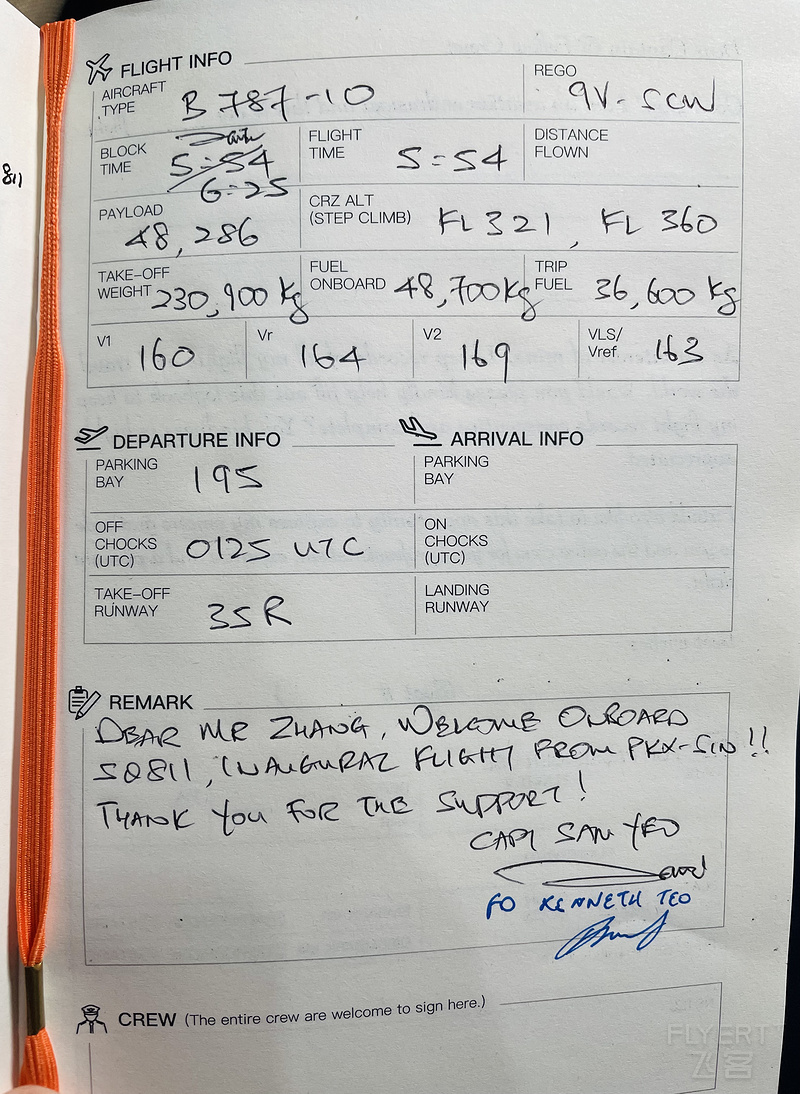 811
FLIGHT INFO
AIRCRAFT TYPE B 787-10
REGO 9V-SCW
BLOCK TIME 5:54 6:25
FLIGHT TIME 5:54
DISTANCE FLOWN
PAYLOAD 48,286
CRZ ALT (STEP CLIMB) FL 321, FL 360
TAKE-OFF WEIGHT 230,900 kg
FUEL ONBOARD 48,700kg
TRIP FUEL 36,600 kg
V1 160
Vr 164
V2 169
VLS/Vref 163
DEPARTURE INFO
ARRIVAL INFO
PARKING BAY 195
PARKING BAY
OFF CHOCKS (UTC) 0125 UTC
ON CHOCKS (UTC)
TAKE-OFF RUNWAY 35R
LANDING RUNWAY
REMARK
DEAR MR ZHANG, WELCOME ONBOARD
SQ811, INAUGURAL FLIGHT FROM PKX-SIN!!
THANK YOU FOR THE SUPPORT!
CAPT SAN YEO
FO KENNETH TEO
CREW (The entire crew are welcome to sign here.)
FLYERT
飞客